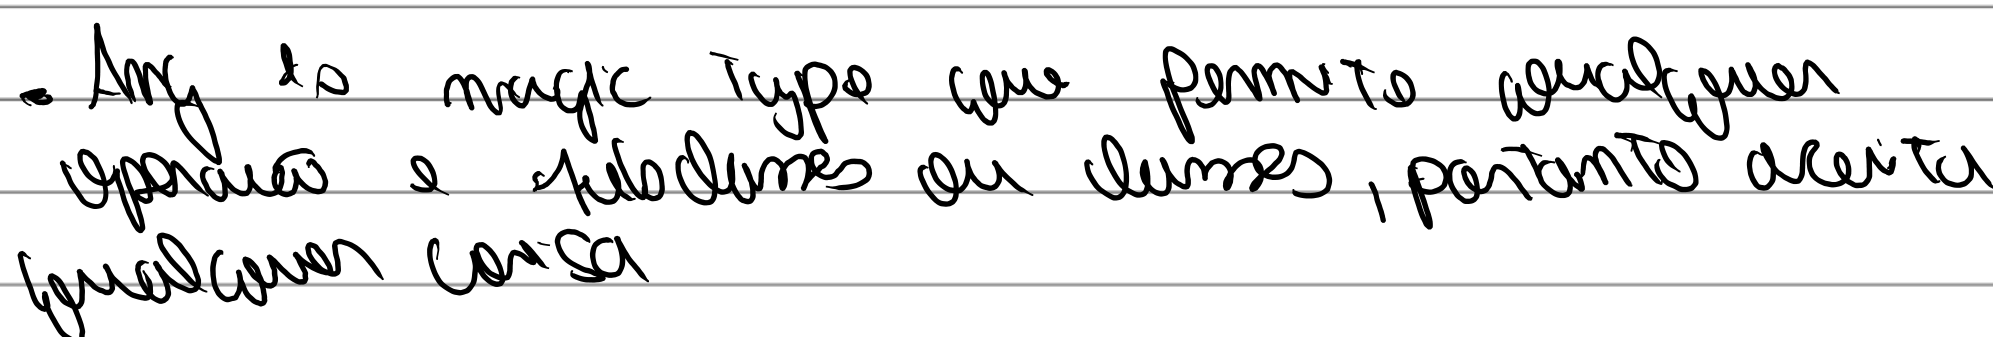 - Any é o magic type que permite qualquer
operação e subclasses ou classes, portanto aceita
qualquer coisa